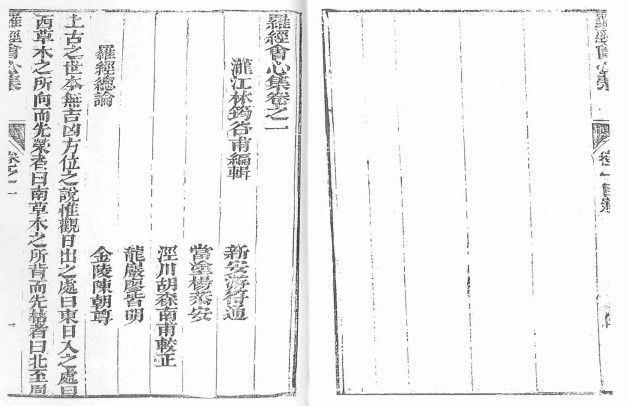 羅經會心集
卷一目錄
羅經會心集卷之一
瀧江林筠谷甫編輯
新安
符通
當塗楊泰安
涇川胡森南甫較正
龍巖廖皆明
金陵陳朝尊
羅經總論
上古之世本無吉凶方位之說惟觀日出之處曰東日入之處曰
西草木之所向而先榮者曰南草木之所背而先枯者曰北至周
羅經會心集
卷之一
一